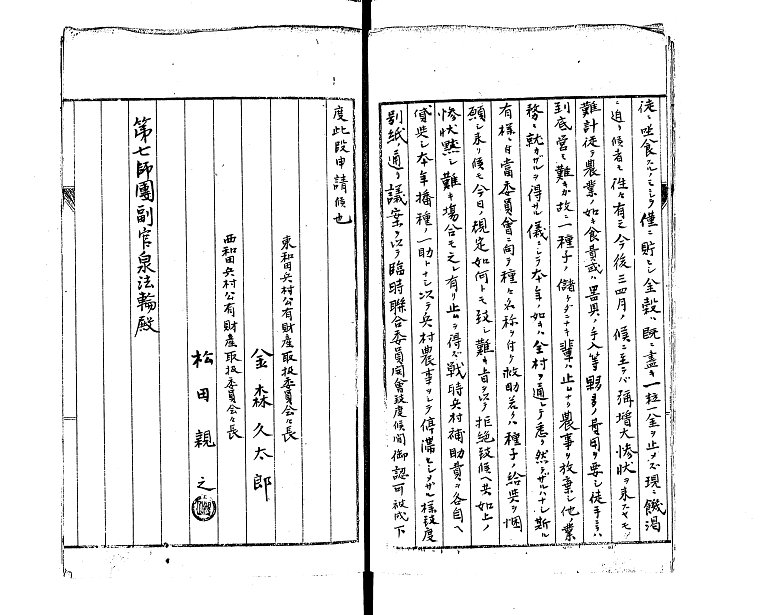 徒ニ坐食スルノミニシテ僅ニ貯ヘシ金穀ハ既ニ盡キ一粒一金ヲ止メズ現ニ饑渇
ニ迫リ候者モ往々有之今後三四月ノ候ニ至ラバ彌増大惨状ヲ来スヤモ
難計徒ラ農業ノ如キ食費或ハ器具ノ手入等夥多ノ費用ヲ要シ徒手ニテハ
到底営ミ難キガ故ニ一種子ノ儲ケダニナキ輩ハ止ムナク農事ヲ放棄シ他業
務ニ就カザルヲ得ザル儀ニシテ本年ノ如キハ全村ヲ通シテ悉ク然ラザルハナシ斯ル
有様ニ付當委員會ニ向テ種々名称ヲ付ケ救助若クハ種子ノ給與ヲ悃
願シ来リ候モ今日ノ規定如何トモ致シ難キ旨ヲ以テ拒絶致候ヘ共如上ノ
惨状黙シ難キ場合モ之レ有リ止ムヲ得ズ戦時兵村補助費ヲ各自ヘ
貸與シ本年播種ノ一助トナシ以テ兵村農事ヲシテ停滞セシメザル様致度
別紙ノ通リ議案ヲ以テ臨時聯合委員開會致度候間御認可被成下
度此段申請候也
東和田兵村公有財産取扱委員会々長
金森久太郎
西和田兵村公有財産取扱委員会々長
松田親之
第七師團副官泉法輪殿